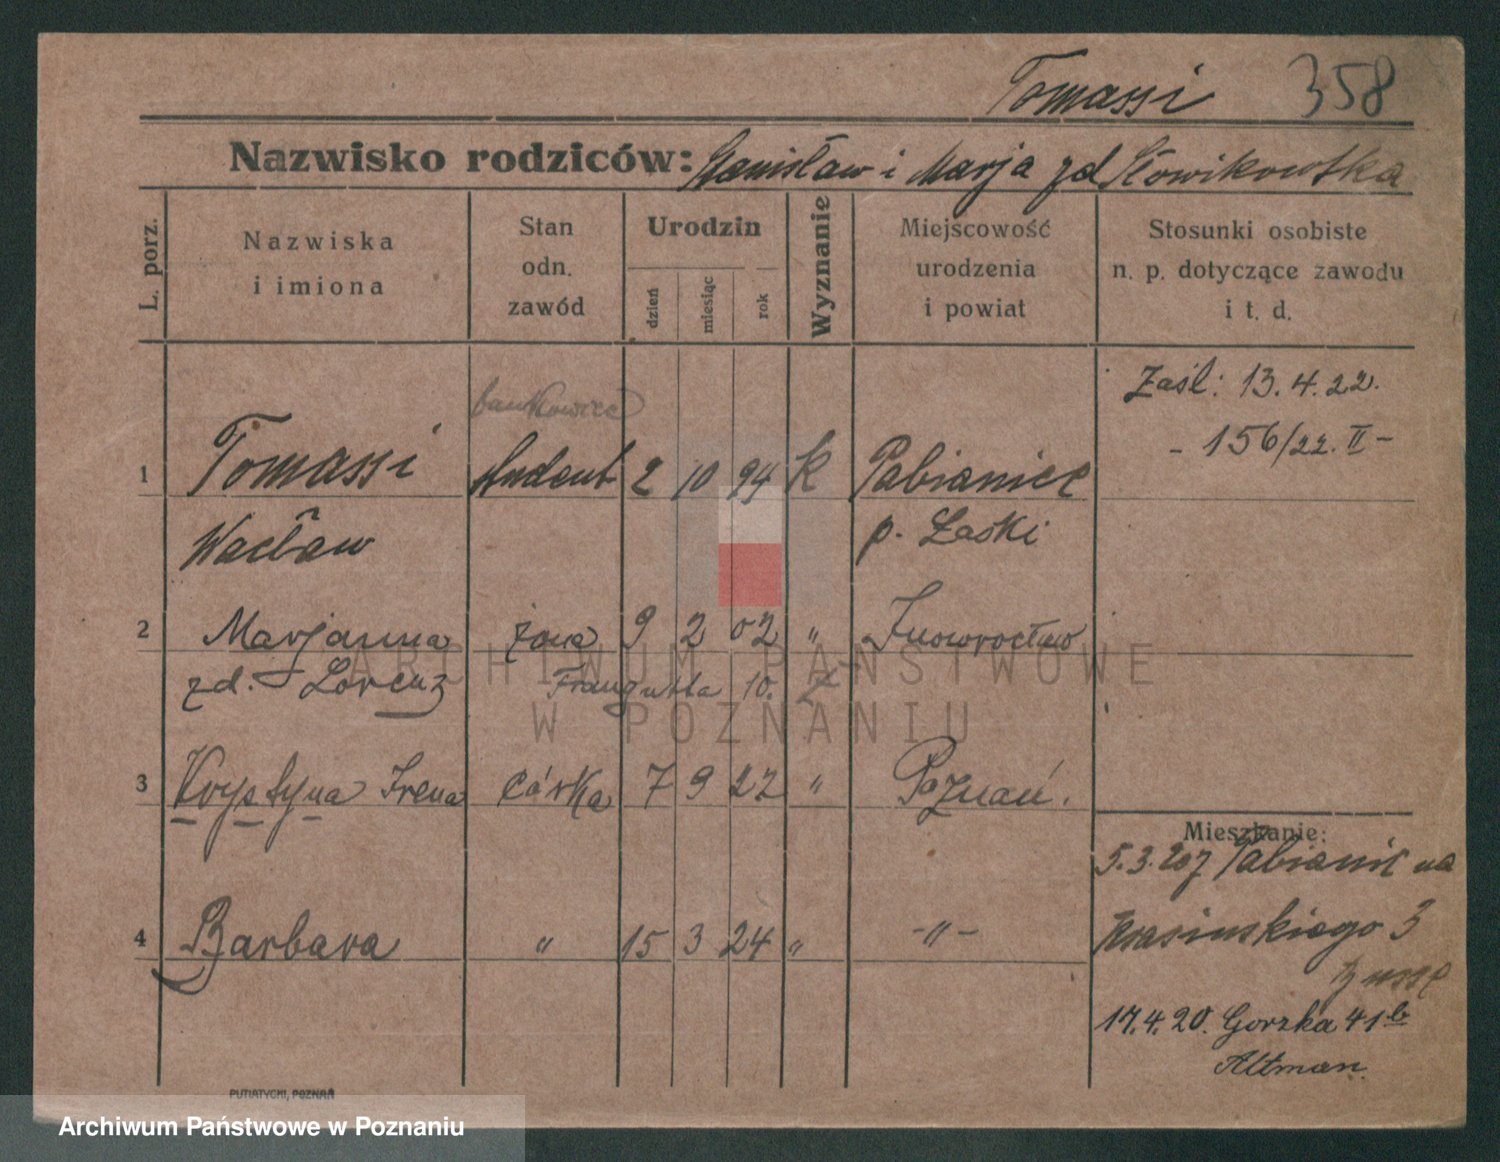 Tomassi 358
Nazwisko rodziców: Stanisław i Marja zd Słowikowska
L. porz.
Nazwiska i imiona
Stan odn. zawód
Urodzin
dzień miesiąc rok
Wyznanie
Miejscowość urodzenia i powiat
Stosunki osobiste n. p. dotyczące zawodu i t. d.
Zaśl: 13.4.22.
- 156/22. II -
bankowiec
1 Tomassi student 2 10 94 K Pabianice
Wacław p. Łaski
2 Marjanna żona 9 2 02 " Inowrocław
zd. Lorenz 10.
3 Krystyna Irena córka 7 9 22 " Poznań.
4 Barbara " 15 3 24 " -"-
Mieszkanie:
5.3.20 z Pabianic na
Krasińskiego 3
17.4.20. Gorzka 41b
Altman.
PUTIATYCKI, POZNAŃ
ARCHIWUM PAŃSTWOWE
W POZNANIU
Archiwum Państwowe w Poznaniu